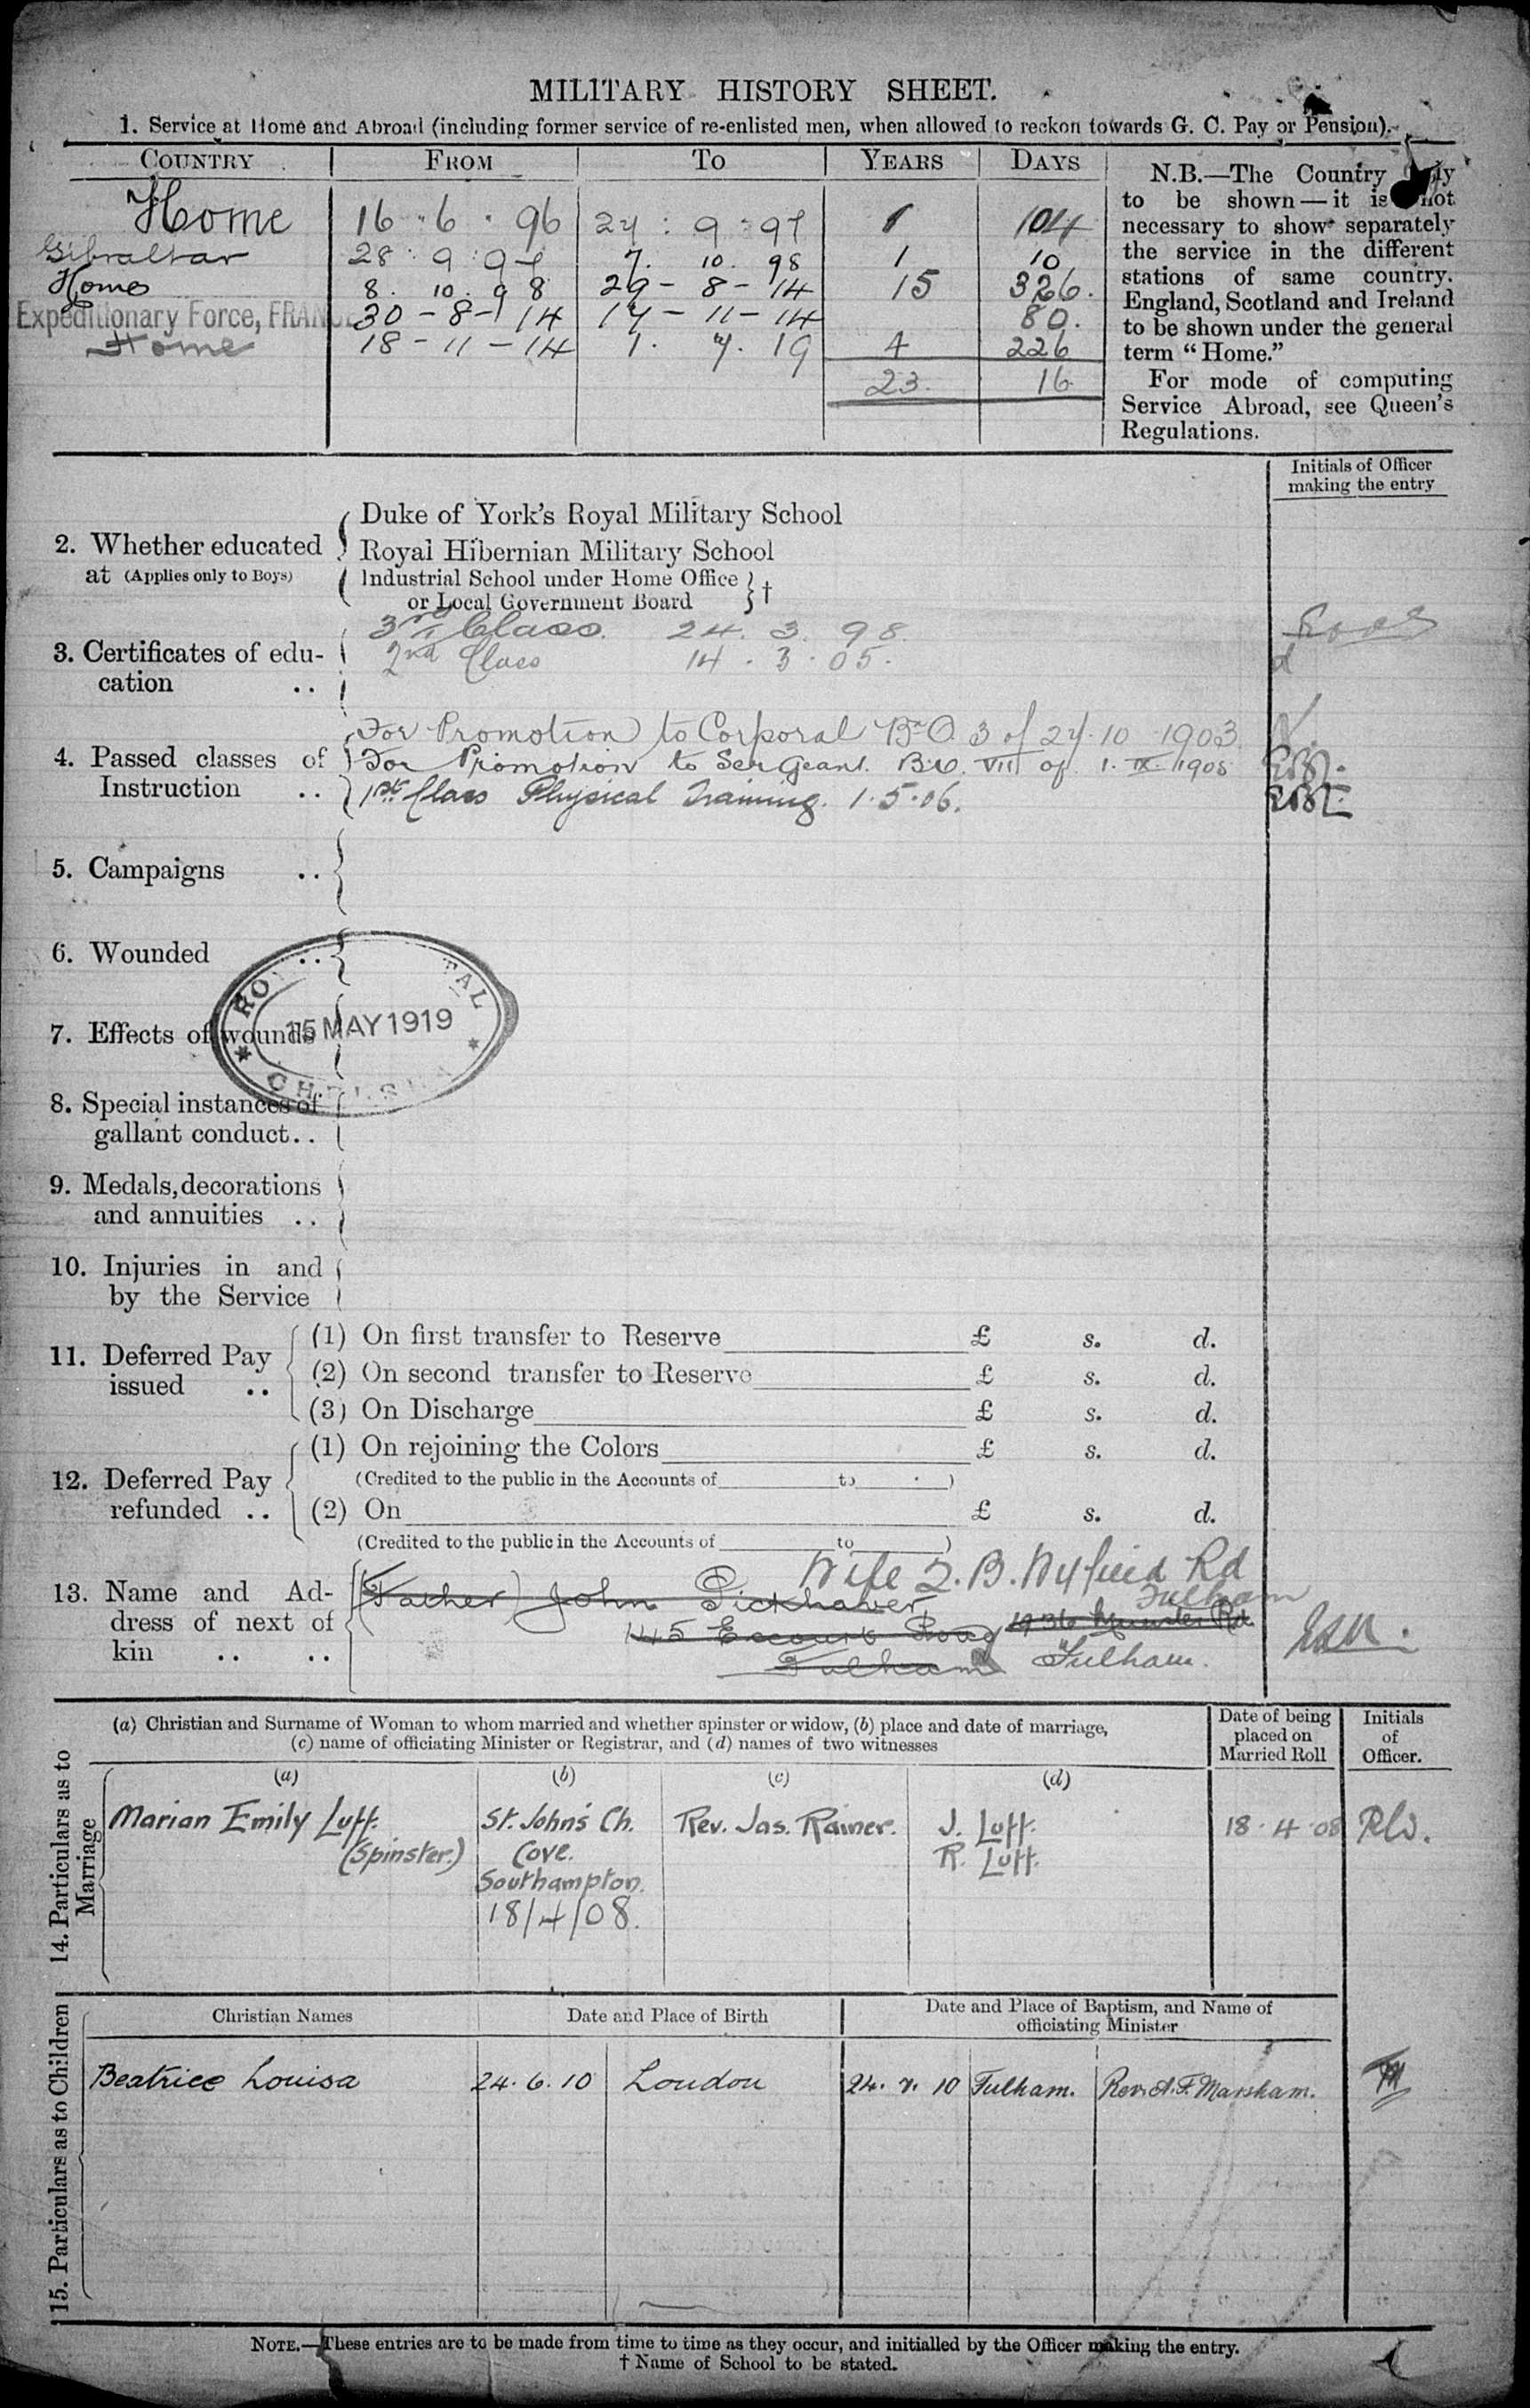 MILITARY HISTORY SHEET.
1. Service at Home and Abroad (including former service of re-enlisted men, when allowed to reckon towards G. C. Pay or Pension).
COUNTRY FROM TO YEARS DAYS
Home 16 . 6 . 96 27 : 9 : 97 1 104
Gibraltar 28 : 9 : 97 7. 10. 98 1 10
Home 8. 10. 98 29 - 8 - 14 15 326.
Expeditionary Force, FRANCE 30 - 8 - 14 17 - 11 - 14 80.
Home 18 - 11 - 14 1. 7. 19 4 226
23. 16
N.B.—The Country only
to be shown — it is not
necessary to show separately
the service in the different
stations of same country.
England, Scotland and Ireland
to be shown under the general
term “Home.”
For mode of computing
Service Abroad, see Queen's
Regulations.
Initials of Officer
making the entry
2. Whether educated
at (Applies only to Boys)
Duke of York's Royal Military School
Royal Hibernian Military School
Industrial School under Home Office
or Local Government Board †
3. Certificates of edu-
cation ..
3rd Class. 24. 3. 98.
2nd Class 14 . 3 . 05.
4. Passed classes of
Instruction ..
For Promotion to Corporal Bn O. 3 of 27. 10 1903
For Promotion to Sergeant. B.O. VII of 1. IX. 1905
1st Class Physical Training. 1.5.06.
5. Campaigns ..
6. Wounded ..
ROY TAL
15 MAY 1919
CHELSEA
7. Effects of wounds
8. Special instances of
gallant conduct..
9. Medals, decorations
and annuities ..
10. Injuries in and
by the Service
11. Deferred Pay
issued ..
(1) On first transfer to Reserve £ s. d.
(2) On second transfer to Reserve £ s. d.
(3) On Discharge £ s. d.
12. Deferred Pay
refunded ..
(1) On rejoining the Colors £ s. d.
(Credited to the public in the Accounts of to )
(2) On £ s. d.
(Credited to the public in the Accounts of to )
13. Name and Ad-
dress of next of
kin .. ..
Wife 2. B. Ryfield Rd
Fulham
(Father) John Pickhaver
145 Road Munster Rd
Fulham Fulham.
14. Particulars as to
Marriage
(a) Christian and Surname of Woman to whom married and whether spinster or widow, (b) place and date of marriage,
(c) name of officiating Minister or Registrar, and (d) names of two witnesses
Date of being
placed on
Married Roll
Initials
of
Officer.
(a) (b) (c) (d)
Marian Emily Luff. St. John's Ch. Rev. Jas. Rainer. J. Luff. 18 . 4 . 08
(Spinster.) Cove. R. Luff.
Southampton.
18/4/08.
15. Particulars as to Children
Christian Names Date and Place of Birth Date and Place of Baptism, and Name of
officiating Minister
Beatrice Louisa 24. 6. 10 London 24. 7. 10 Fulham. Rev. A. F. Marsham.
NOTE.—These entries are to be made from time to time as they occur, and initialled by the Officer making the entry.
† Name of School to be stated.